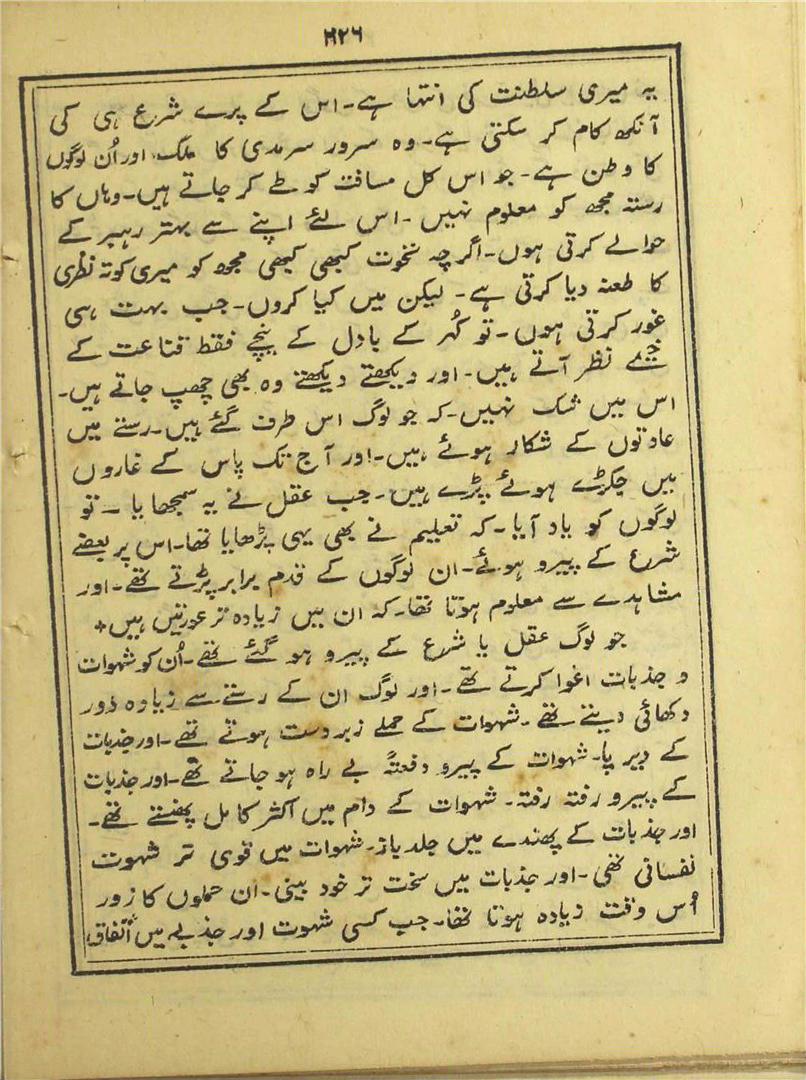 ۴۲۶
یہ میری سلطنت کی انتہا ہے۔ اس کے پرے شرع ہی کی
آنکھ کام کر سکتی ہے۔ وہ سرور سرمدی کا ملک اور اُن لوگوں
کا وطن ہے۔ جو اس کل مسافت کو طے کر جاتے ہیں۔ وہاں کا
رستہ مجھ کو معلوم نہیں۔ اس لئے اپنے سے بہتر رہبر کے
حوالے کرتی ہوں۔ اگرچہ نخوت کبھی کبھی مجھ کو میری کوتہ نظری
کا طعنہ دیا کرتی ہے۔ لیکن میں کیا کروں۔ جب بہت ہی
غور کرتی ہوں۔ تو کُہر کے بادل کے نیچے فقط قناعت کے
خیمے نظر آتے ہیں۔ اور دیکھتے دیکھتے وہ بھی چھپ جاتے ہیں۔
اس میں شک نہیں۔ کہ جو لوگ اس طرف گئے ہیں۔ رستے میں
عادتوں کے شکار ہوئے ہیں۔ اور آج تک پاس کے غاروں
میں جکڑے ہوئے پڑے ہیں۔ جب عقل نے یہ سمجھایا ۔ تو
لوگوں کو یاد آیا۔ کہ تعلیم نے بھی یہی پڑھایا تھا۔ اس پر بعضے
شرع کے پیرو ہوئے۔ ان لوگوں کے قدم برابر پڑتے تھے۔ اور
مشاہدے سے معلوم ہوتا تھا۔ کہ ان میں زیادہ تر عورتیں ہیں +
جو لوگ عقل یا شرع کے پیرو ہو گئے تھے۔ اُن کو شہوات
و جذبات اغوا کرتے تھے۔ اور لوگ ان کے رستے سے زیادہ دُور
دکھائی دیتے تھے۔ شہوات کے حملے زبردست ہوتے تھے۔ اور جذبات
کے دیرپا۔ شہوات کے پیرو دفعتہً بے راہ ہو جاتے تھے۔ اور جذبات
کے پیرو رفتہ رفتہ۔ شہوات کے دام میں اکثر کامل پھنستے تھے۔
اور جذبات کے پھندے میں جلد باز۔ شہوات میں قوی تر شہوت
نفسانی تھی۔ اور جذبات میں سخت تر خود بینی۔ ان حملوں کا زور
اُس وقت زیادہ ہوتا تھا۔ جب کسی شہوت اور جذبے میں اتفاق